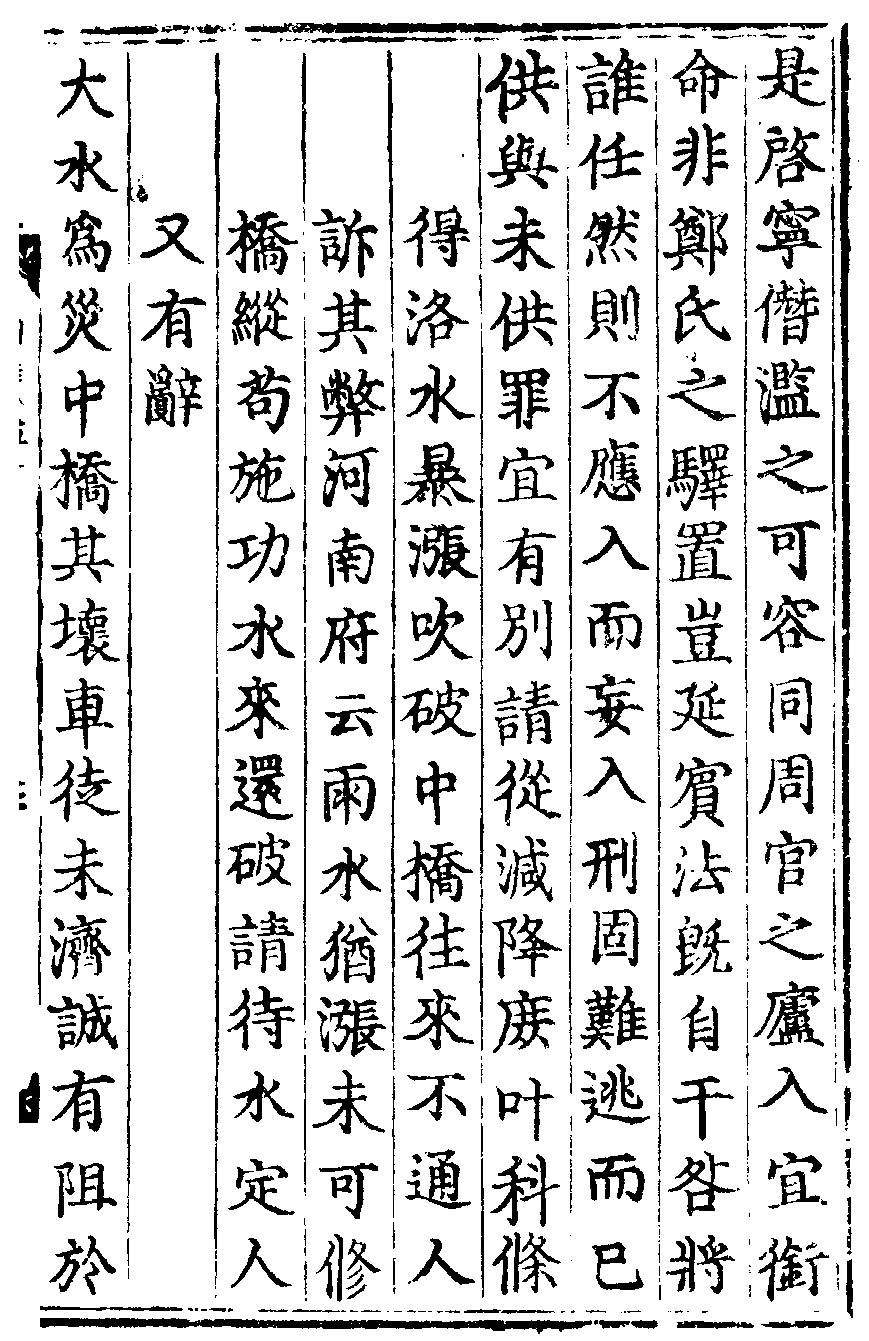 是啓寧僭濫之可容同周官之廬入宜銜
命非鄭氏之驛置豈延賓法旣自干咎將
誰任然則不應入而妄入刑固難逃而已
供與未供罪宜有別請從減降庻叶科條
得洛水暴漲吹破中橋往來不通人
訴其弊河南府云雨水猶漲未可修
橋縱苟施功水來還破請待水定人
又有辭
大水爲災中橋其壞車徒未濟誠有阻於